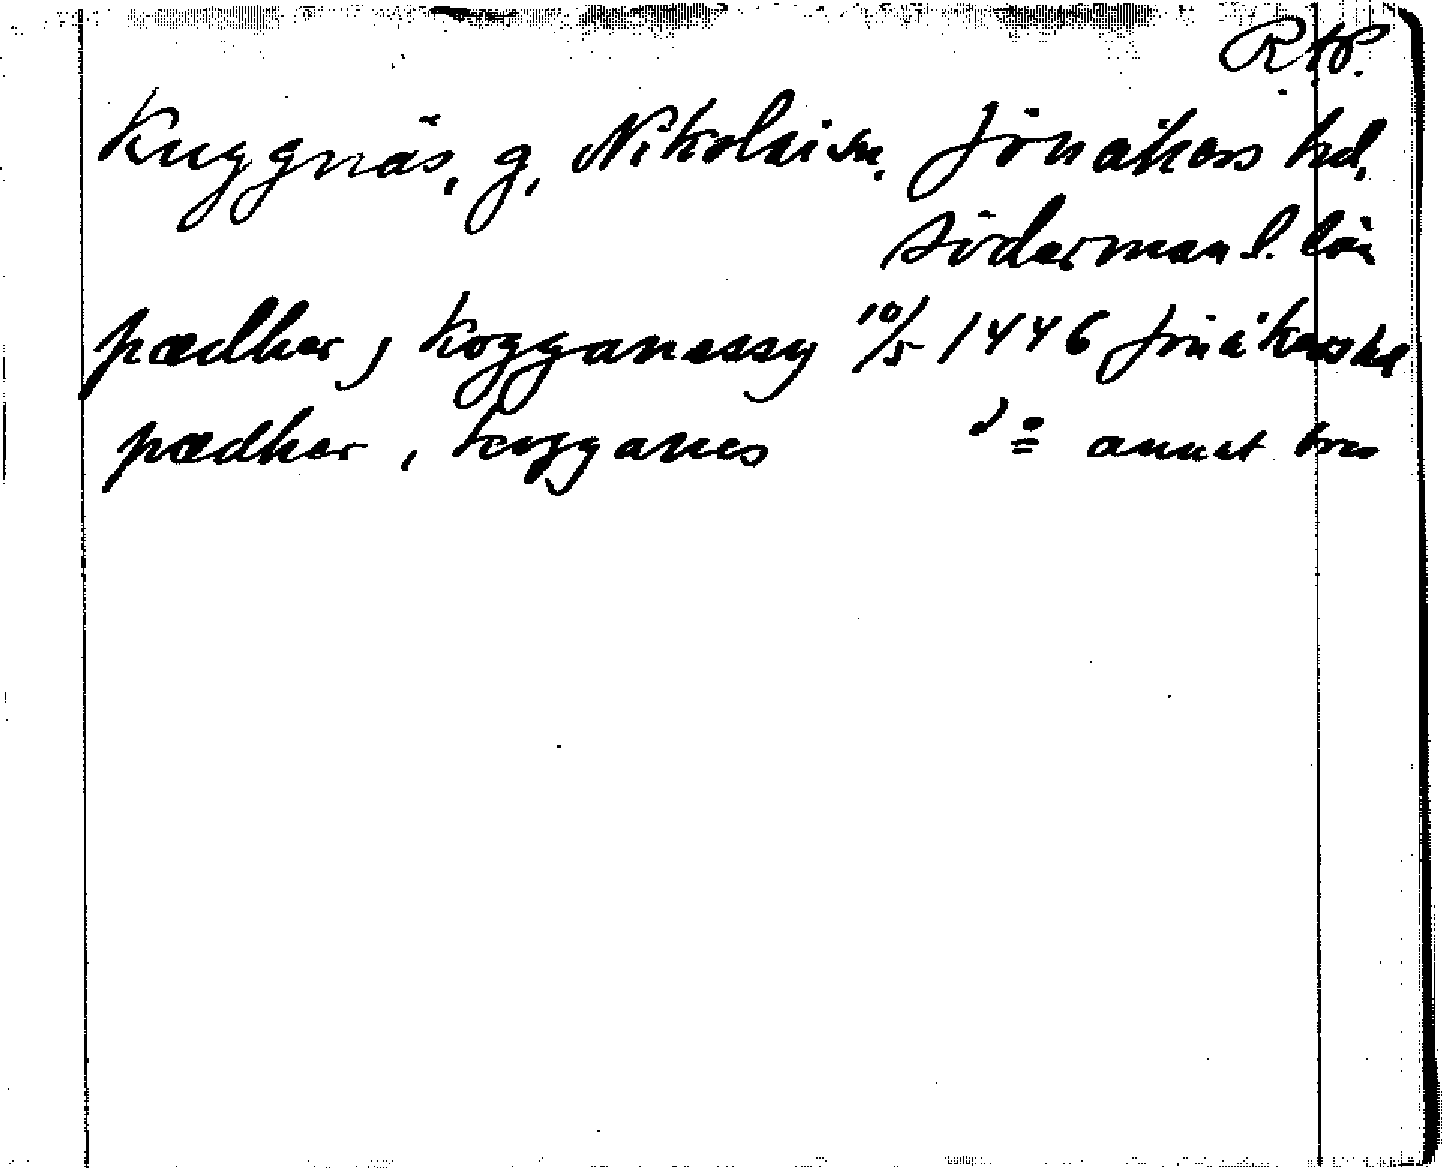 R.Ap.
Kuggnäs, g, Nikolai sn. Jönåkers hd,
Söderman l. län
pædher j kogganessy 10/5 1446 Jönåkers hd
pædher, kogganes do annat brev